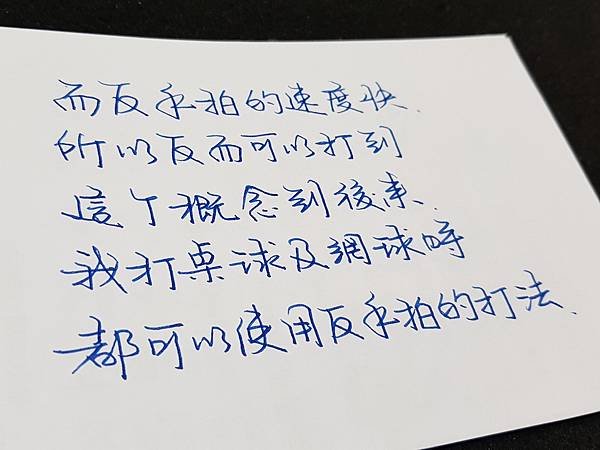 而反手拍的速度快、
所以反而可以打到
這个概念到後來、
我打桌球及網球時
都可以使用反手拍的打法、